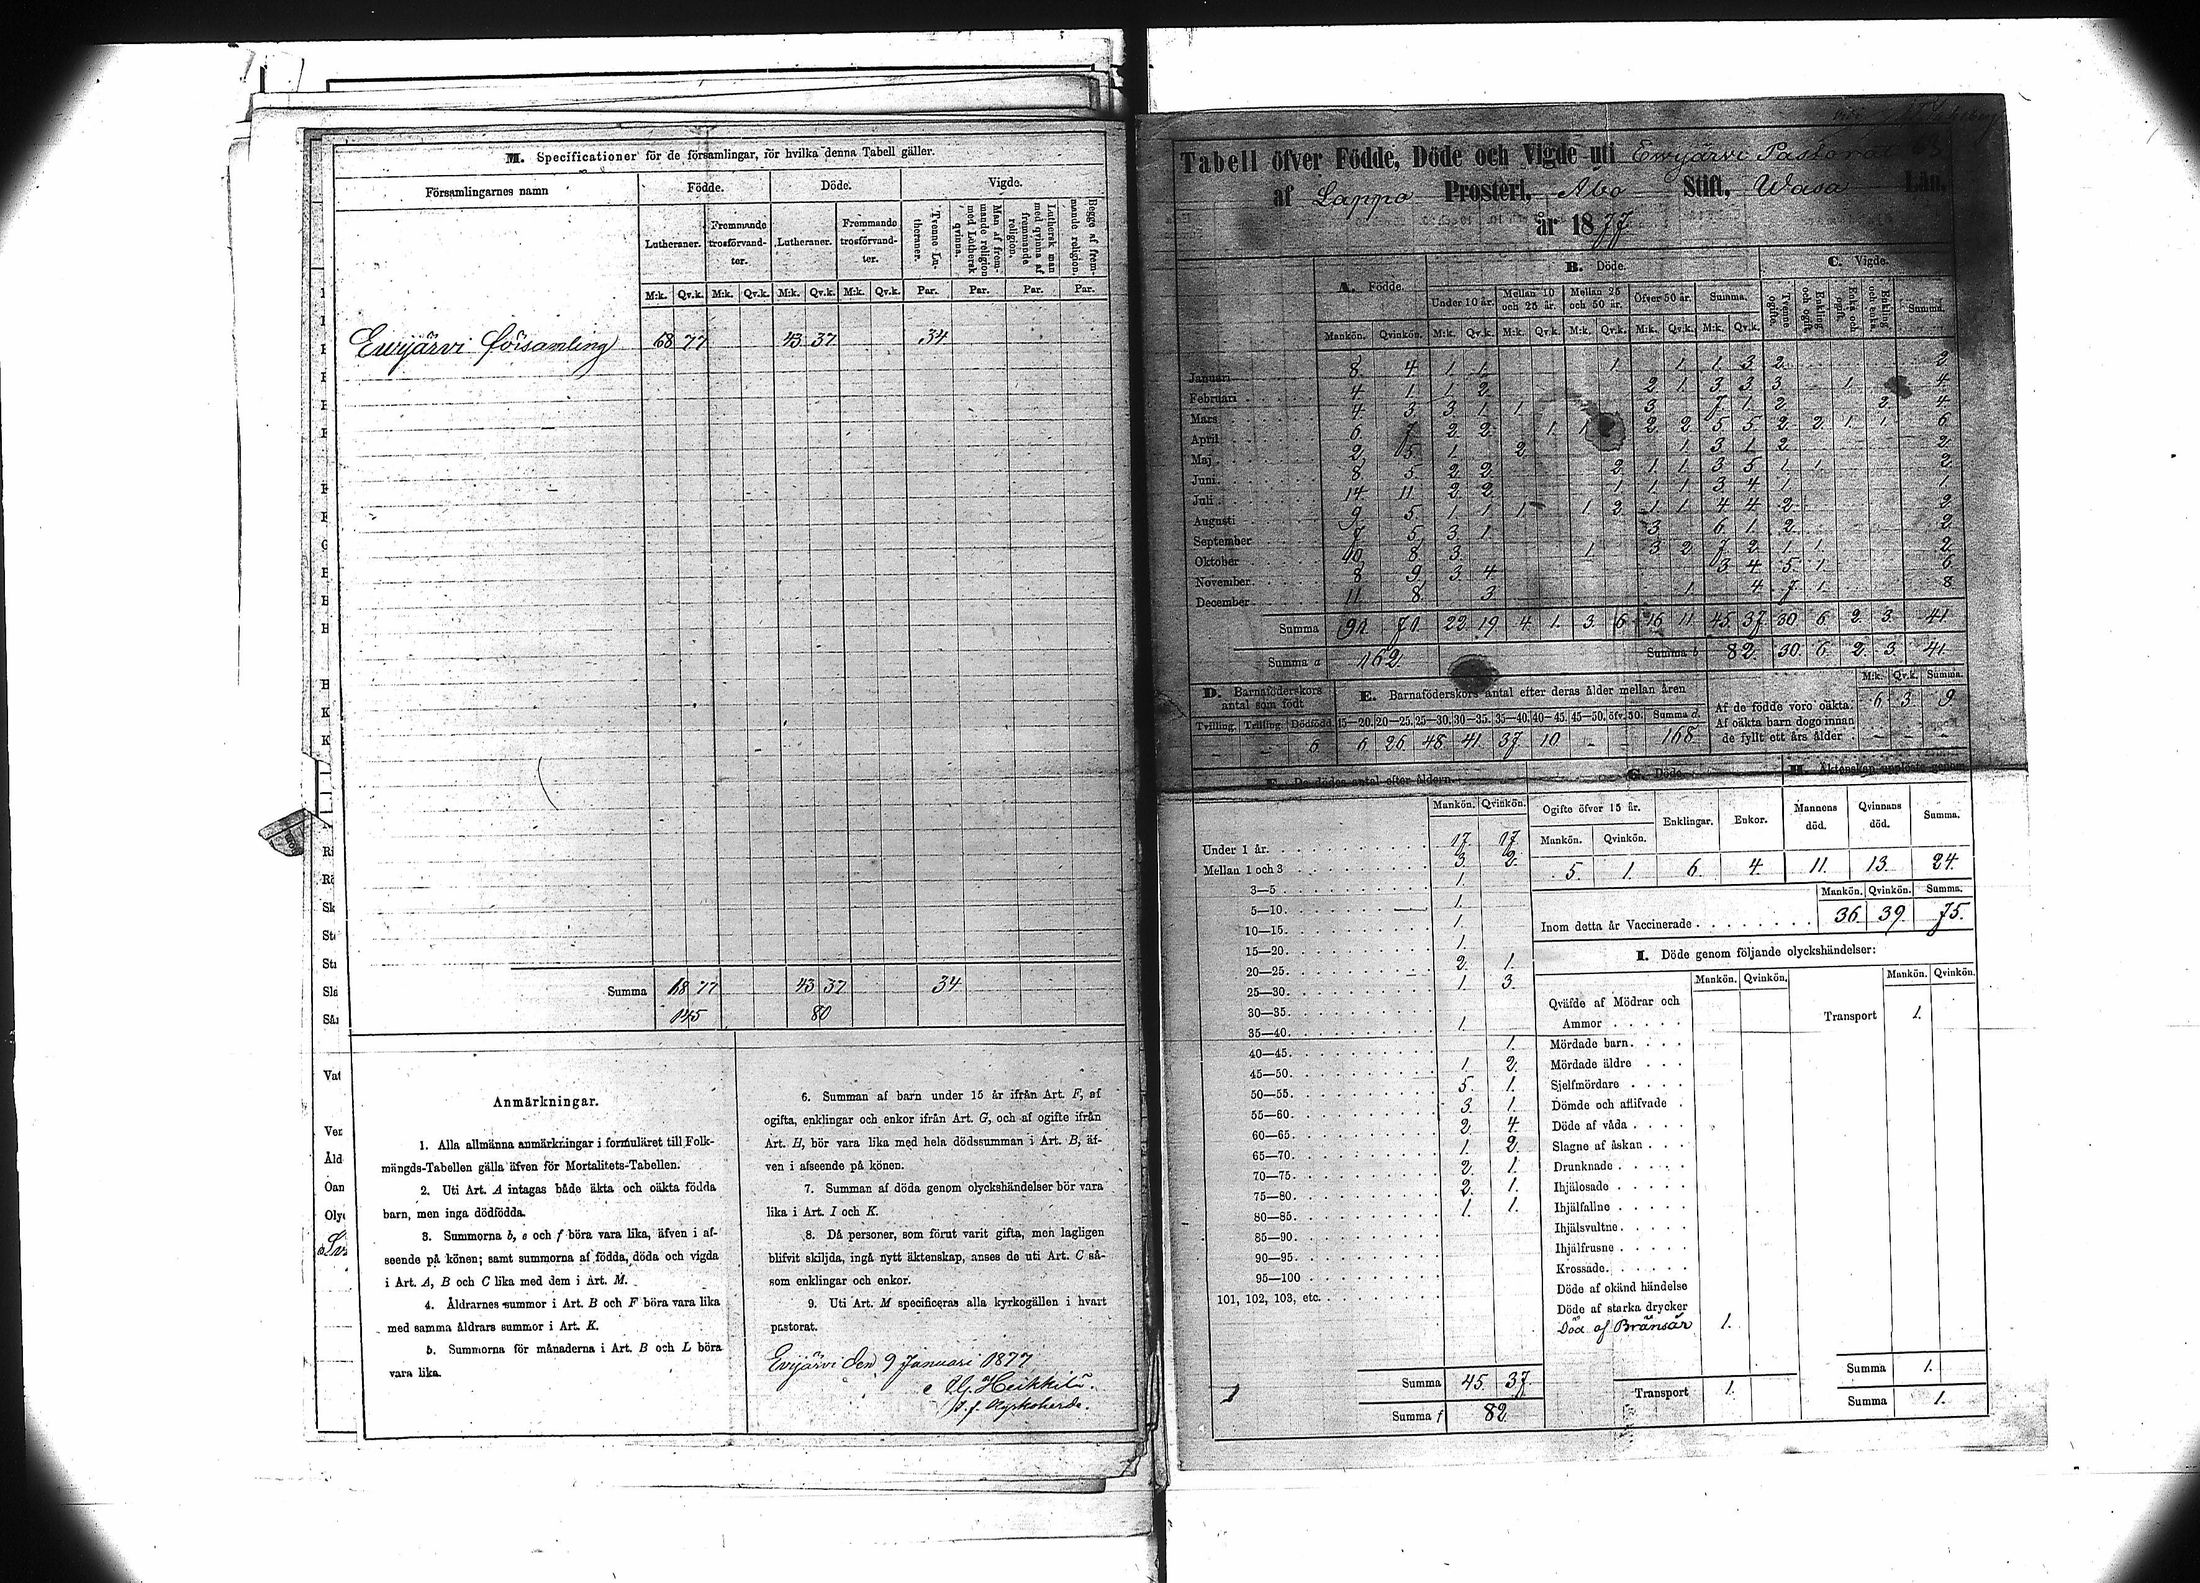 M. Specificationer för de församlingar, för hvilka denna Tabell gäller.
Församlingarnes namn
Födde. Döde. Vigde.
Lutheraner. Fremmande trosförvandter. Lutheraner. Fremmande trosförvandter. Tvenne Lutheraner. Man af fremmande religion med Luthersk qvinna. Luthersk man med qvinna af fremmande religion. Begge af fremmande religion.
M:k. Qv.k. M:k. Qv.k. M:k. Qv.k. M:k. Qv.k. Par. Par. Par. Par.
Ewijärvi församling 68 77 43 37 34
Summa 68 77 43 37 34
145 80
Anmärkningar.
1. Alla allmänna anmärkningar i formuläret till Folk-
mängds-Tabellen gälla äfven för Mortalitets-Tabellen.
2. Uti Art. A intagas både äkta och oäkta födda
barn, men inga dödfödda.
3. Summorna b, e och f böra vara lika, äfven i af-
seende på könen; samt summorna af födda, döda och vigda
i Art. A, B och C lika med dem i Art. M.
4. Åldrarnes summor i Art. B och F böra vara lika
med samma åldrars summor i Art. K.
5. Summorna för månaderna i Art. B och L böra
vara lika.
6. Summan af barn under 15 år ifrån Art. F, af
ogifta, enklingar och enkor ifrån Art. G, och af ogifte ifrån
Art. H, bör vara lika med hela dödssumman i Art. B, äf-
ven i afseende på könen.
7. Summan af döda genom olyckshändelser bör vara
lika i Art. I och K.
8. Då personer, som förut varit gifta, men lagligen
blifvit skiljda, ingå nytt äktenskap, anses de uti Art. C så-
som enklingar och enkor.
9. Uti Art. M specificeras alla kyrkogällen i hvart
pastorat.
Evijärvi den 9 Januari 1877
J. G. Heikkilä.
v. f. Kyrkoherde.
Tabell öfver Födde, Döde och Vigde uti Ewijärvi Pastorat
af Lappo Prosteri, Åbo Stift, Wasa Län,
år 1877
A. Födde. B. Döde. C. Vigde.
Under 10 år. Mellan 10 och 25 år. Mellan 25 och 50 år. Öfver 50 år. Summa. Tvenne ogifte. Enkling och ogift. Enka och ogift. Enkling och enka. Summa.
Mankön. Qvinkön. M:k. Qv.k. M:k. Qv.k. M:k. Qv.k. M:k. Qv.k. M:k. Qv.k.
Januari 8. 4 1 1. 1 1 1. 3 2. 2.
Februari 4 1 1 2. 2 1 3. 3 3 1. 4.
Mars 4 3 3 1 1 3. 7. 1. 2. 2. 4.
April 6 7 2 2. 1. 1 2 2 5 5 2. 2. 1. 1. 6
Maj 2. 5 1. 2. 1. 3 1. 2. 2.
Juni 8 5. 2 2. 2 1. 1 3 5. 1. 1. 2.
Juli 14 11. 2. 2. 1 1. 1. 3 4 1. 1
Augusti 9 5. 1 1 1. 1 2. 1. 1 4 4 2. 2.
September 7 5. 3. 1. 3. 6 1 2. 2.
Oktober 10 8. 3. 1. 3 2. 7. 2. 1. 1. 2.
November 8 9. 3. 4. 3 4 5. 1. 6
December 11 8. 3. 1. 4 7 1. 8
Summa 91. 71. 22. 19. 4. 1. 3. 6 16 11. 45 37 30 6. 2. 3. 41.
Summa a 162. Summa b 82. 30 6. 2. 3. 41.
D. Barnaföderskors antal som födt
Tvilling. Trilling. Dödfödd.
– 6.
E. Barnaföderskors antal efter deras ålder mellan åren
15—20. 20—25. 25—30. 30—35. 35—40. 40—45. 45—50. öfv. 50. Summa d.
6. 26. 48. 41. 37. 10. – – 168.
M:k. Qv.k. Summa.
Af de födde voro oäkta. 6 3 9
Af oäkta barn dogo innan
de fyllt ett års ålder – – –
F. De dödes antal efter åldern.
Mankön. Qvinkön.
Under 1 år. 17. 17.
Mellan 1 och 3 3. 2.
3—5 1.
5—10. 1.
10—15. 1.
15—20. 1.
20—25. 2. 1.
25—30. 1. 3.
30—35.
35—40. 1.
40—45. 1.
45—50. 1. 2.
50—55. 5. 1.
55—60. 3. 1.
60—65. 2. 4.
65—70. 1. 2.
70—75. 2. 1.
75—80. 2. 1.
80—85. 1. 1.
85—90.
90—95.
95—100
101, 102, 103, etc.
Summa 45. 37.
Summa f 82
G. Döde.
Ogifte öfver 15 år. Enklingar. Enkor.
Mankön. Qvinkön.
5. 1. 6. 4.
H. Äktenskap upplöste genom
Mannens död. Qvinnans död. Summa.
11. 13. 24.
Mankön. Qvinkön. Summa.
Inom detta år Vaccinerade 36. 39. 75.
I. Döde genom följande olyckshändelser:
Mankön. Qvinkön. Mankön. Qvinkön.
Qväfde af Mödrar och
Ammor
Transport 1.
Mördade barn.
Mördade äldre
Sjelfmördare
Dömde och aflifvade
Döde af våda
Slagne af åskan
Drunknade
Ihjälosade
Ihjälfallne
Ihjälsvultne.
Ihjälfrusne
Krossade.
Döde af okänd händelse
Döde af starka drycker
Död af Brännsår 1.
Summa 1.
Transport 1.
Summa 1.